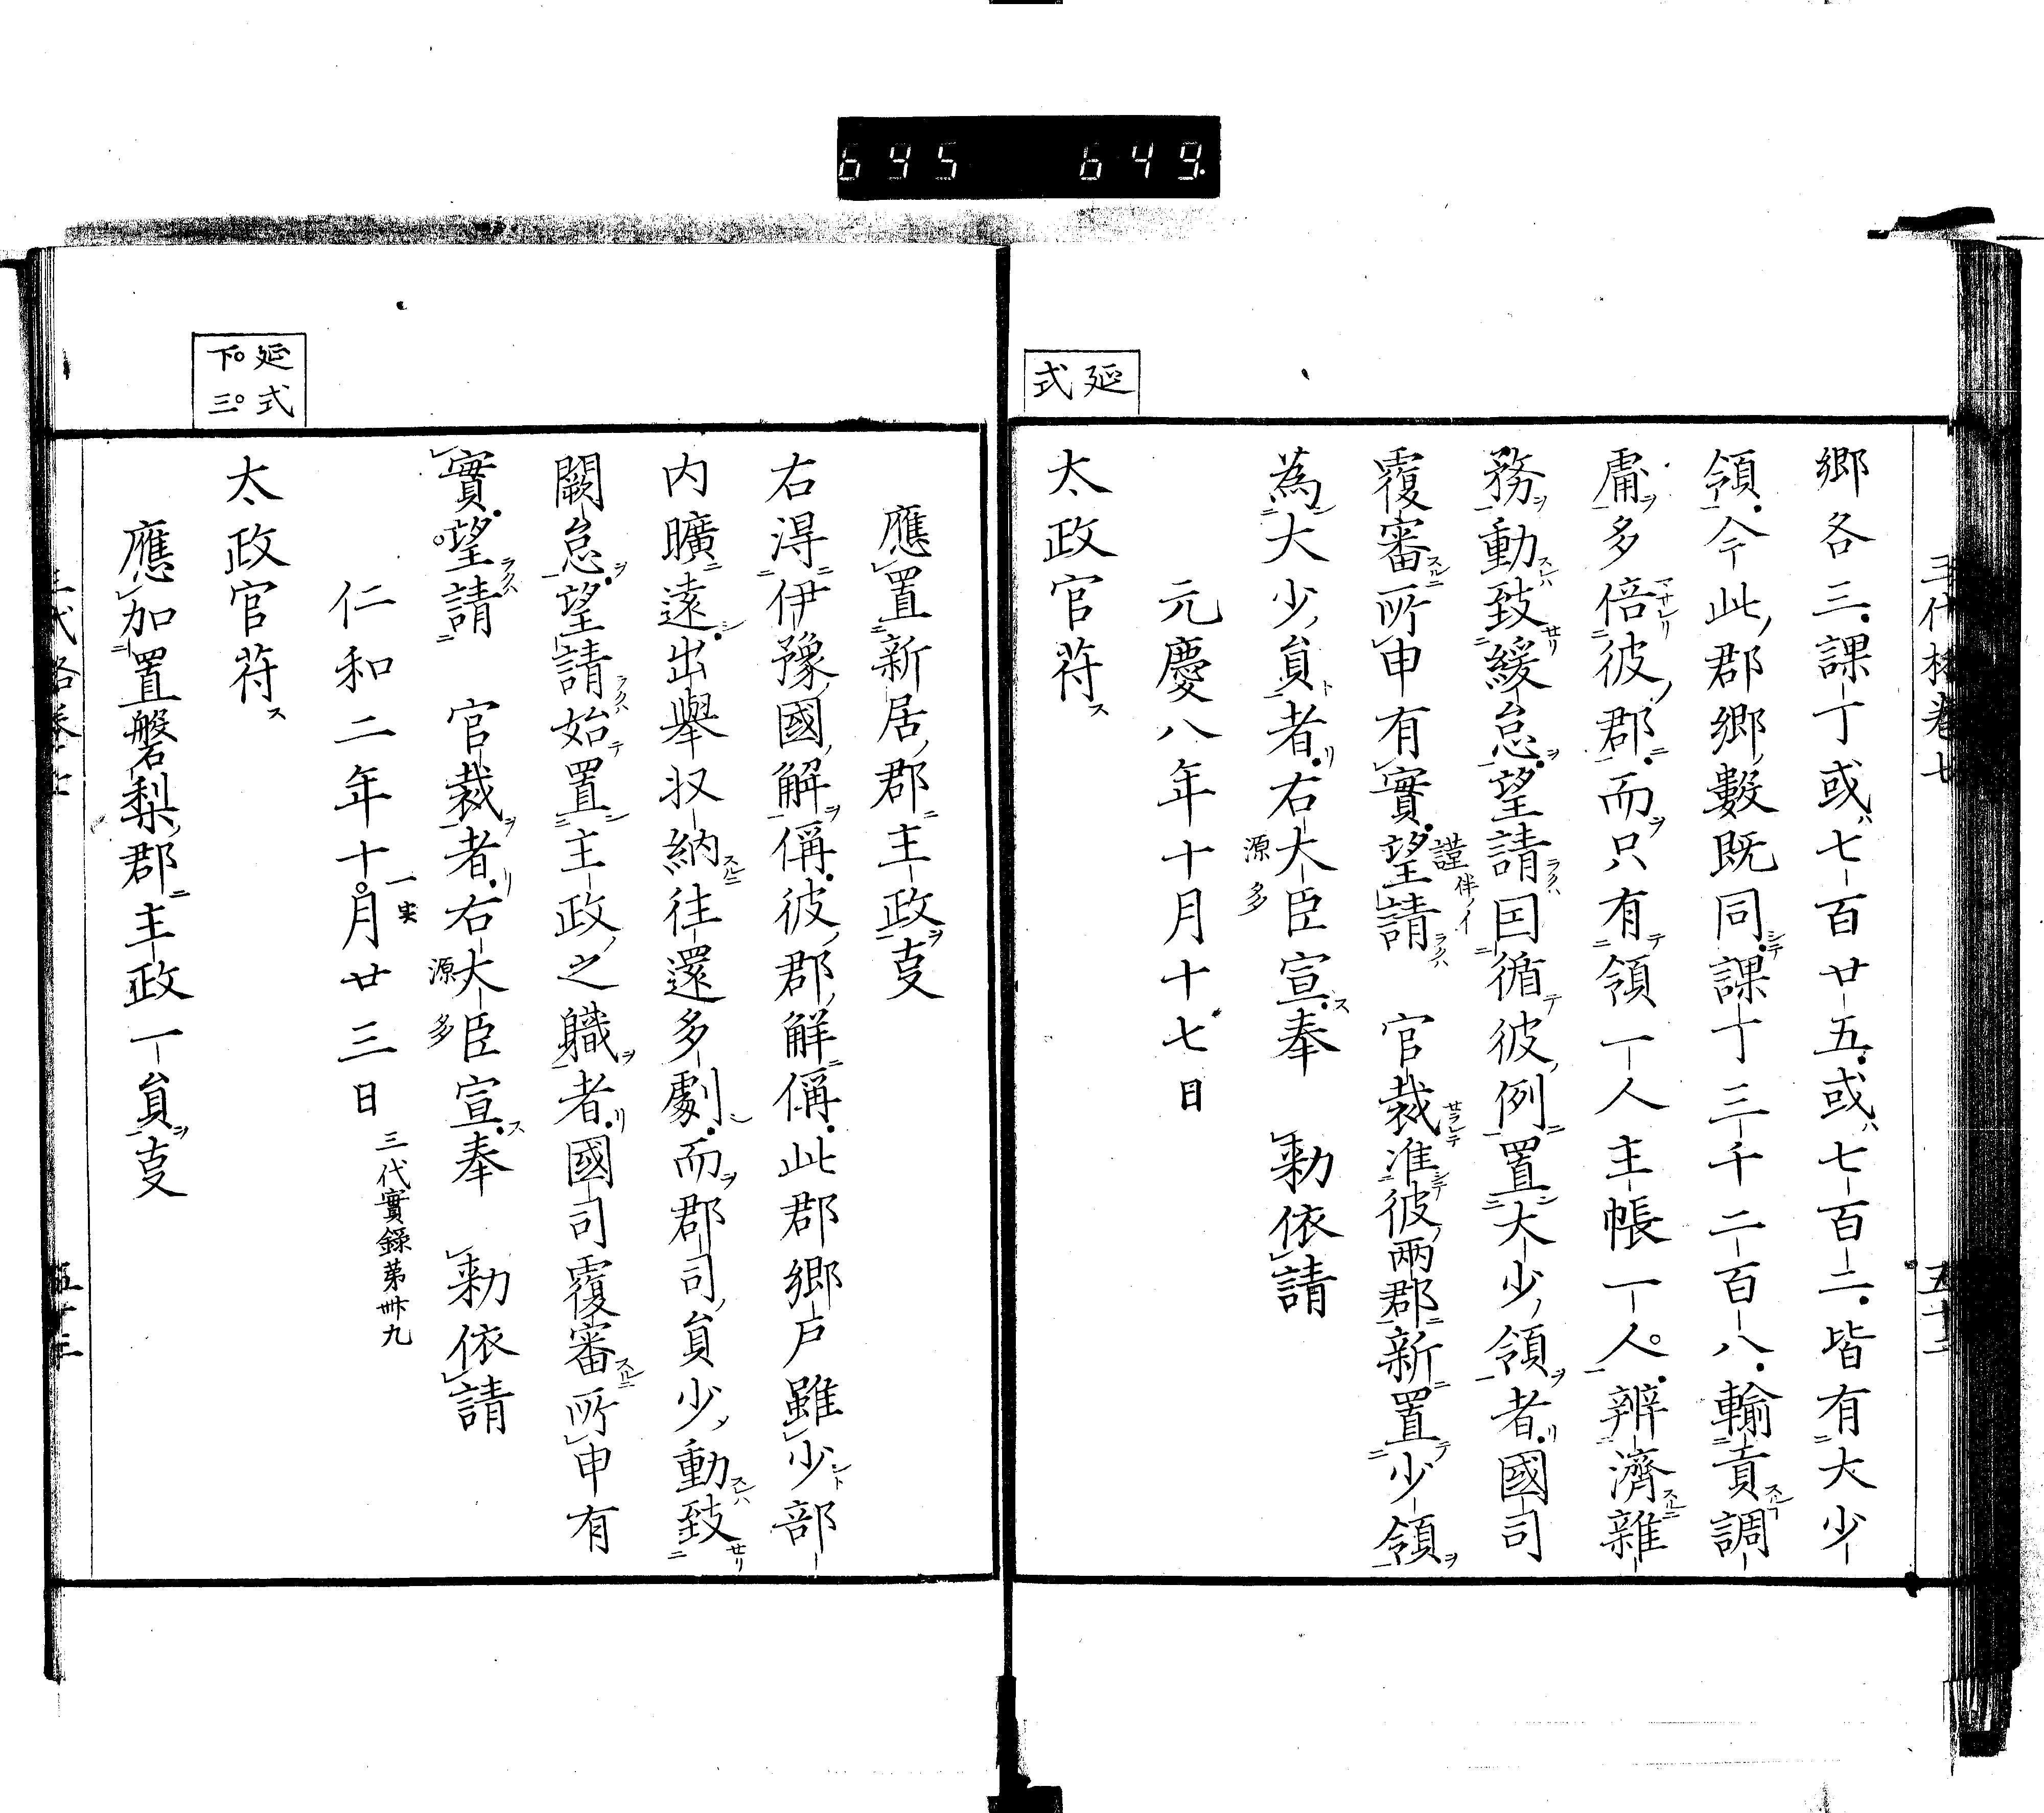 695 649.
延式
郷各三課丁或七百廿五或七百二皆有大少
領今此郡郷數既同課丁三千二百八輸貢調
庸多倍彼郡而只有領一人主帳一人辨濟雜
務動致緩怠望請因循彼例置大少領者國司
覆審所申有實望請　官裁准彼兩郡新置少領
為大少員者右大臣宣奉　勅依請
源多
元慶八年十月十七日
太政官符
應置新居郡主政㕝
右得伊豫國解偁彼郡解偁此郡郷戸雖少部
内曠遠出舉収納往還多劇而郡司員少動致
闕怠望請始置主政之職者國司覆審所申有
實望請　官裁者右大臣宣奉　勅依請
源多
仁和二年十月廿三日　三代實錄第卅九
延式
下三
太政官符
應加置磐梨郡主政一員㕝